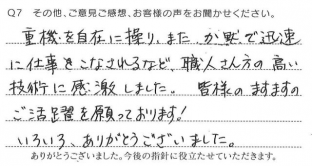 Q7 その他、ご意見ご感想、お客様の声をお聞かせください。
重機を自在に操り、また、寡黙で迅速
に仕事をこなされるなど、職人さん方の高い
技術に感激しました。 皆様のますますの
ご活躍を願っております!
いろいろ、ありがとうございました。
ありがとうございました。今後の指針に役立たせていただきます。